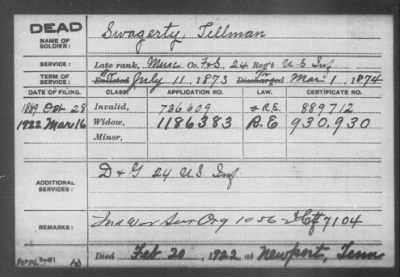 DEAD
NAME OF SOLDIER: Swagerty, Tillman
SERVICE: Late rank, Musc Co. F&S, 24 Reg't U S Inf
TERM OF SERVICE: Enlisted July 11, 1873 Discharged Mar 1, 1874
DATE OF FILING. CLASS. APPLICATION NO. LAW. CERTIFICATE NO.
1889 Oct 28 Invalid, 736609 G.R.E. 889712
1922 Mar 16 Widow, 1186383 R.E 930,930
Minor,
ADDITIONAL SERVICES: D & G 24 U.S. Inf
REMARKS: Ind War Sur Org 1056 Ctf 7104
Died Feb 20, 1922, at Newport, Tenn